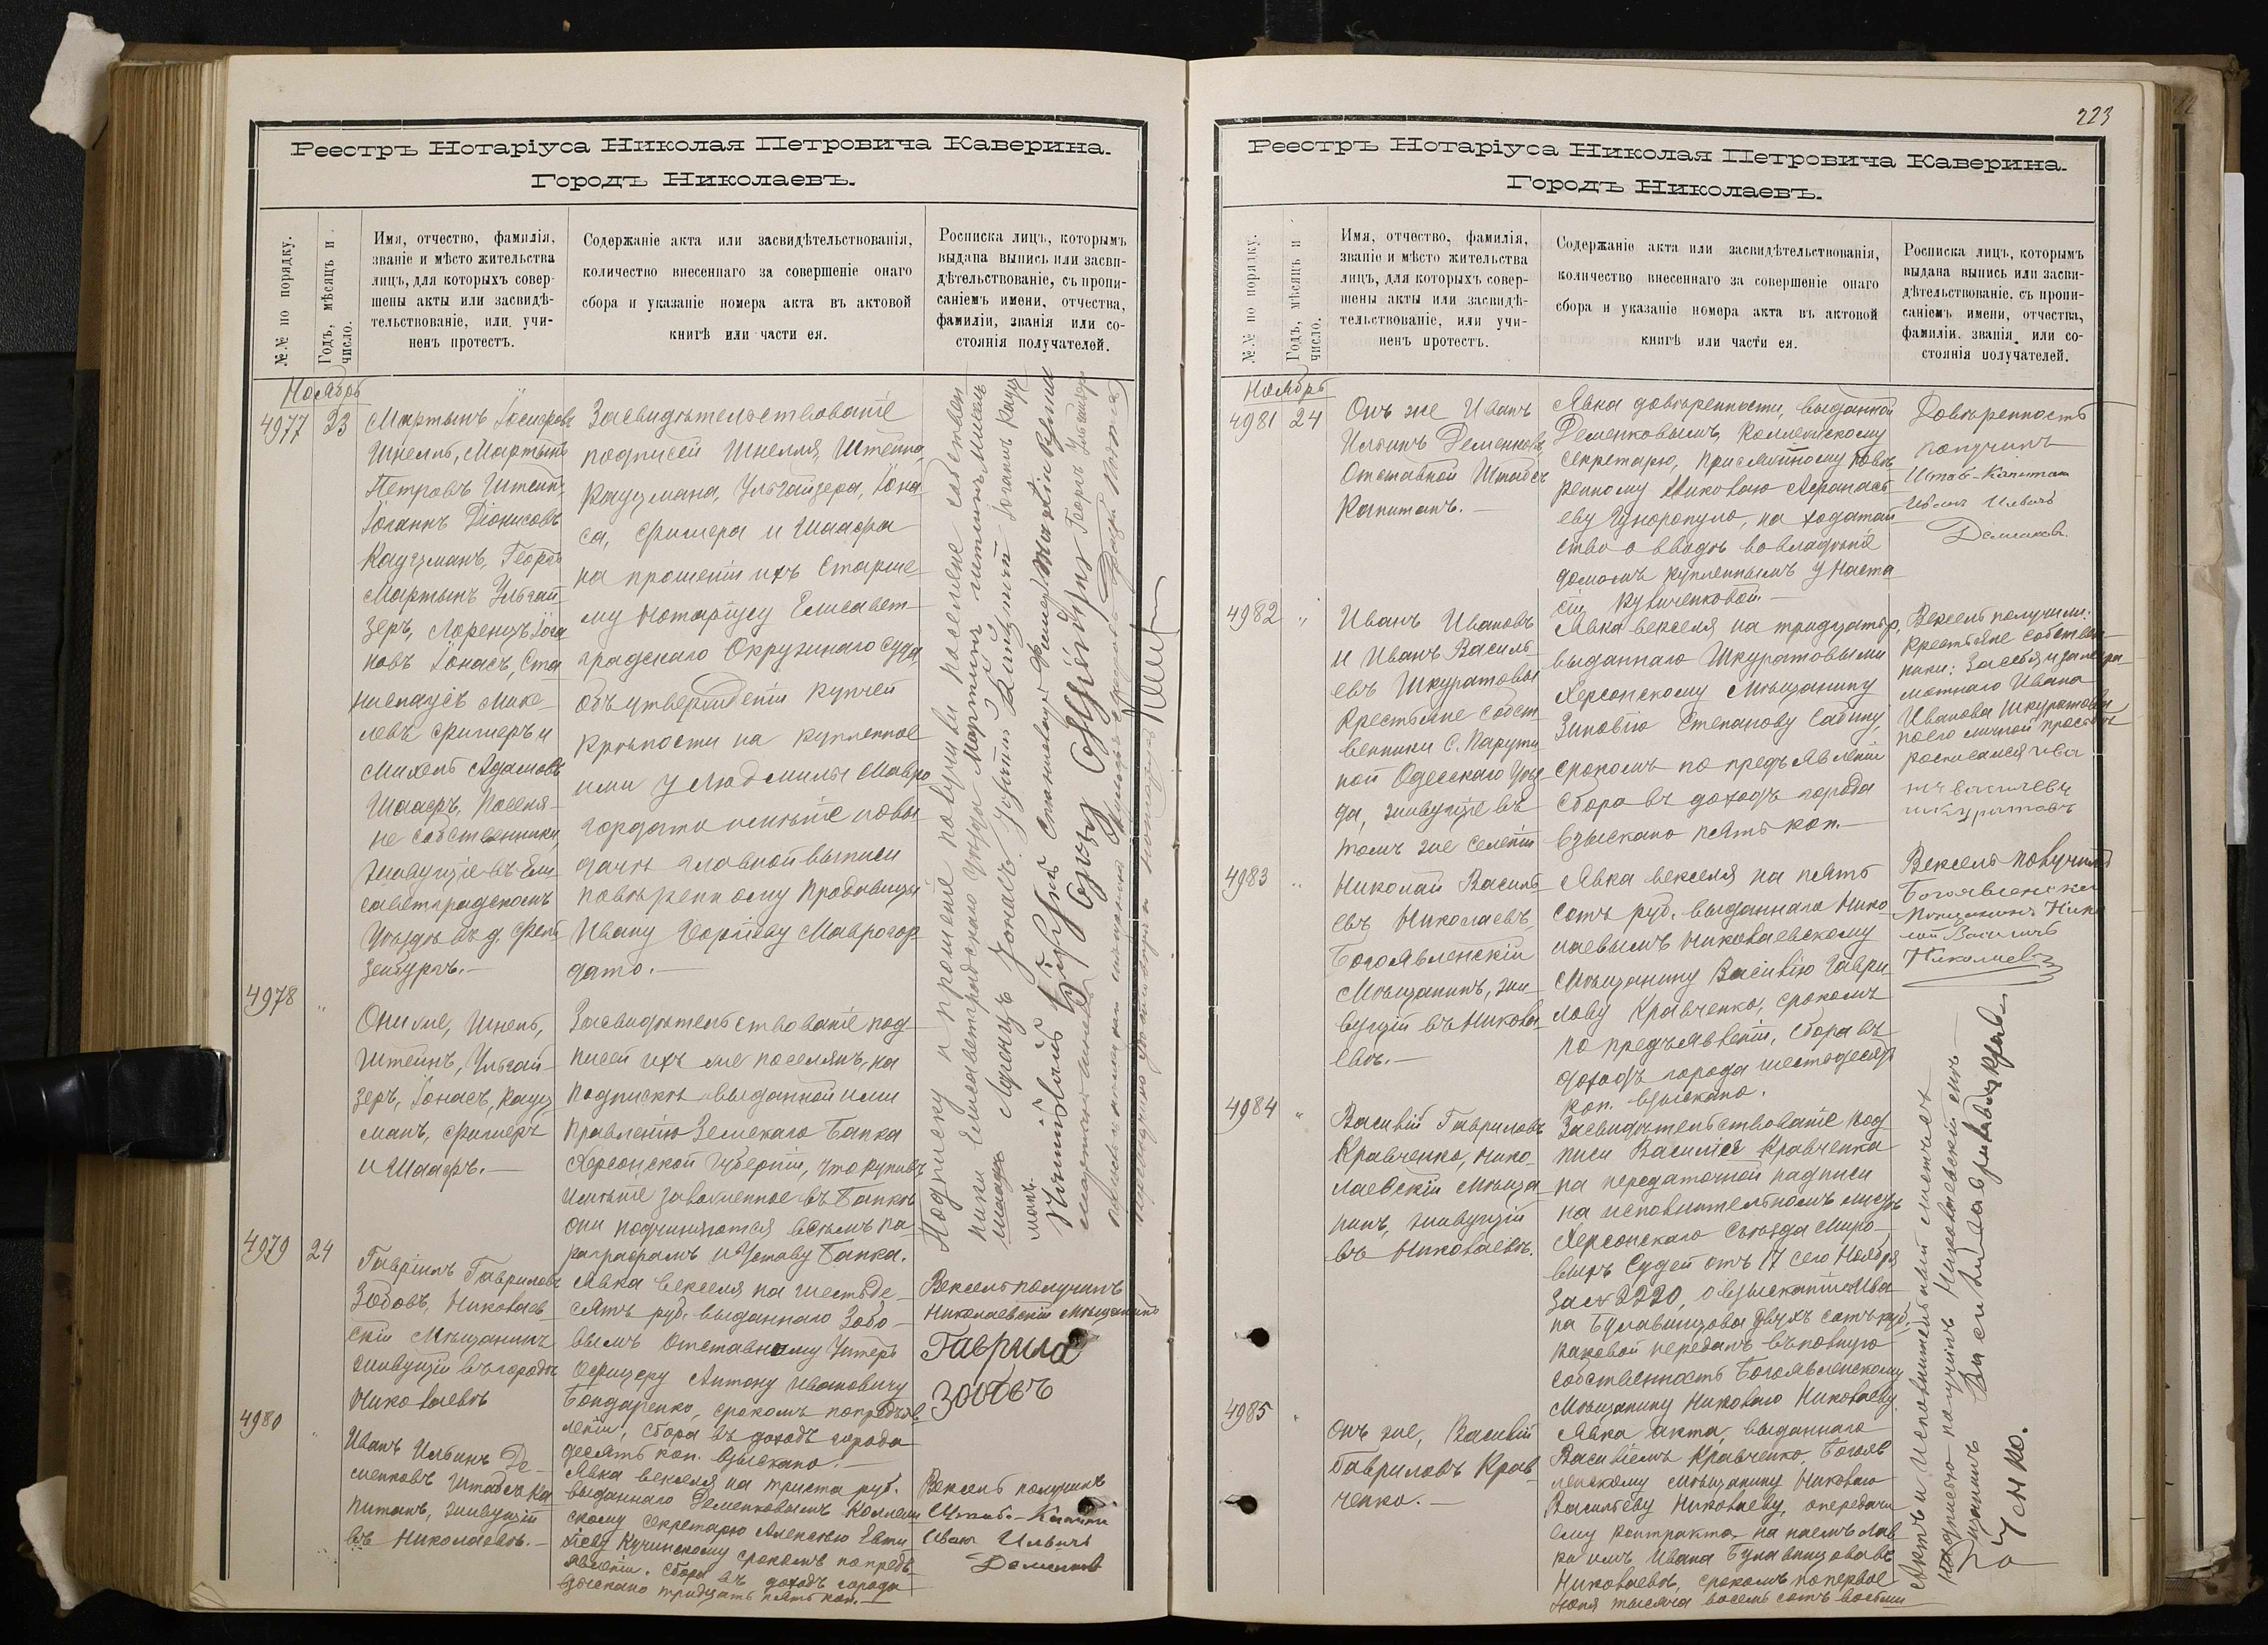 Реестръ Нотаріуса Николая Петровича Каверина.
Городъ Николаевъ.
№.№ по порядку.
Годъ, мѣсяцъ и
число.
Имя, отчество, фамилія,
званіе и мѣсто жительства
лицъ, для которыхъ совер-
шены акты или засвидѣ-
тельствованіе, или учи-
ненъ протестъ.
Содержаніе акта или засвидѣтельствованія,
количество внесеннаго за совершеніе онаго
сбора и указаніе номера акта въ актовой
книгѣ или части ея.
Росписка лицъ, которымъ
выдана выпись или засви-
дѣтельствованіе, съ пропи-
саніемъ имени, отчества,
фамиліи, званія или со-
стоянія получателей.
Ноябрь
4977
23
Мартынъ
Шнелль, Мартынъ
Петровъ Штейнъ,
Іоганнъ Діонисовъ
Кауцманъ, Георгъ
Мартынъ Ульгай-
зеръ, Лоренцъ Іога
новъ Іонасъ, Ста
ниславъ Михе-
левъ Фишеръ и
Михель Адамовъ
Шаафъ, Поселя-
не собственники,
живущіе въ Ели-
саветградскомъ
Уѣздѣ въ д.
Засвидѣтельствованіе
подписей Шнелля, Штейна,
Кауцмана, Ульгайзера, Іона-
са, Фишера и Шаафа
на прошеніи ихъ Старше-
му Нотаріусу Елисавет-
градскаго Окружнаго Суда,
объ утвержденіи купчей
крѣпости на купленное
ими у Людмилы Мавро
гордато имѣніе и о вы-
дачѣ главной выписи
повѣренному продавицы
Ивану Маврогор-
дато.—
4978
"
Они же, Шнель,
Штейнъ, Ульгай-
зеръ, Іонасъ, Кауц
манъ, Фишеръ
и Шаафъ.—
Засвидѣтельствованіе под-
писей ихъ же поселянъ, на
подпискѣ выданной ими
Правленію Земскаго Банка
Херсонской Губерніи, что купивъ
имѣніе заложенное въ Банкѣ
они подчиняются всѣмъ па-
раграфамъ и Уставу Банка.
Подписку и прошеніе получили поселяне собствен
ники Елисаветградскаго уѣзда
Лоренцъ Іонасъ
4979
24
Гавріилъ Гавриловъ
Зобовъ, Николаев
скій Мѣщанинъ
живущій въ городѣ
Николаевѣ
Явка векселя на шестьде-
сятъ руб. выданнаго Зобо-
вымъ Отставному Унтеръ
Офицеру Антону Ивановичу
Бондаренко, срокомъ по предъяв
леніи, сбора въ доходъ города
десять коп. взыскано.—
Вексель получилъ
Николаевскій Мѣщанинъ
Гаврила
Зобовъ
4980
"
Иванъ Ильинъ Де-
менковъ Штабсъ Ка
питанъ, живущій
въ Николаевѣ.—
Явка векселя на триста руб.
выданнаго Деменковымъ Коллеж
скому Секретарю Алексѣю Евти
хіеву Кучинскому срокомъ по предъ
явленіи. Сбора въ доходъ города
взыскано тридцать пять коп.—
Вексель получилъ
Штабс-Капитан
Иван Ильичъ
Деменков
223
Реестръ Нотаріуса Николая Петровича Каверина.
Городъ Николаевъ.
№.№ по порядку.
Годъ, мѣсяцъ и
число.
Имя, отчество, фамилія,
званіе и мѣсто жительства
лицъ, для которыхъ совер-
шены акты или засвидѣ-
тельствованіе, или учи-
ненъ протестъ.
Содержаніе акта или засвидѣтельствованія,
количество внесеннаго за совершеніе онаго
сбора и указаніе номера акта въ актовой
книгѣ или части ея.
Росписка лицъ, которымъ
выдана выпись или засви-
дѣтельствованіе, съ пропи-
саніемъ имени, отчества,
фамиліи, званія или со-
стоянія получателей.
Ноябрь
4981
24
Онъ же Иванъ
Ильинъ Деменковъ
Отставной Штабсъ
Капитанъ.—
Явка довѣренности, выданной
Деменковымъ, Коллежскому
Секретарю, Присяжному Повѣ
ренному Николаю Афанась
еву на ходатай
ство о вводѣ во владѣніе
домомъ купленнымъ у Наста
сіи Кувиченковой.—
Довѣренность
получилъ
Штаб-Капитан
Иван Ильичъ
Деменков.
4982
"
Иванъ Ивановъ
и Иванъ Василь
евъ Шкуратовы
Крестьяне собст
венники С. Парути
ной Одесскаго Уѣз
да, живущіе въ
томъ же селеніи
Явка векселя на тридцать р.
выданнаго Шкуратовыми
Херсонскому Мѣщанину
Зиновію Степанову Сабину,
срокомъ по предъявленіи
Сбора въ доходъ города
взыскано пять коп.—
Вексель получили:
Крестьяне собствен-
ники: За себя и за негра-
мотнаго Ивана
Иванова Шкуратова
по его личной просьбѣ
росписался Ива
нъ Васильевъ
Шкуратовъ
4983
"
Николай Василь
евъ Николаевъ,
Богоявленскій
Мѣщанинъ, жи-
вущій въ Никола
евѣ.—
Явка векселя на пять
сотъ руб. выданнаго Нико-
лаевымъ Николаевскому
Мѣщанину Василію Гаври
лову Кравченко, срокомъ
по предъявленіи, сбора въ
доходъ города шестьдесятъ
коп. взыскано.
Вексель получилъ
Богоявленски
Мещанинъ Нико
лай Василичъ
Николаевъ
4984
"
Василій Гавриловъ
Кравченко, Нико-
лаевскій Мѣща-
нинъ, живущій
въ Николаевѣ.
Засвидѣтельствованіе под-
писи Василія Кравченка
на передаточной надписи
на исполнительномъ листѣ
Херсонскаго Съѣзда Миро-
выхъ Судей отъ 17 сего Ноября
за № 2220, о взысканіи съ Ива
на Булавинцова двухъ сотъ руб.
каковой передалъ въ полную
собственность Богоявленскому
Мѣщанину Николаю Николаеву.
4985
"
Онъ же, Василій
Гавриловъ Крав-
ченко.—
Явка акта, выданнаго
Василіемъ Кравченко, Богояв
ленскому Мѣщанину Николаю
Васильеву Николаеву, о передачи
ему контракта на наемъ лав
ки имъ Ивана Булавинцова въ
Николаевѣ, срокомъ по первое
Іюня тысяча восемь сотъ восьми
Актъ и исполнительный листъ съ
надписью получилъ Николаевскій
Мѣщанинъ Василий Гаврилавичъ Крав
ченко.